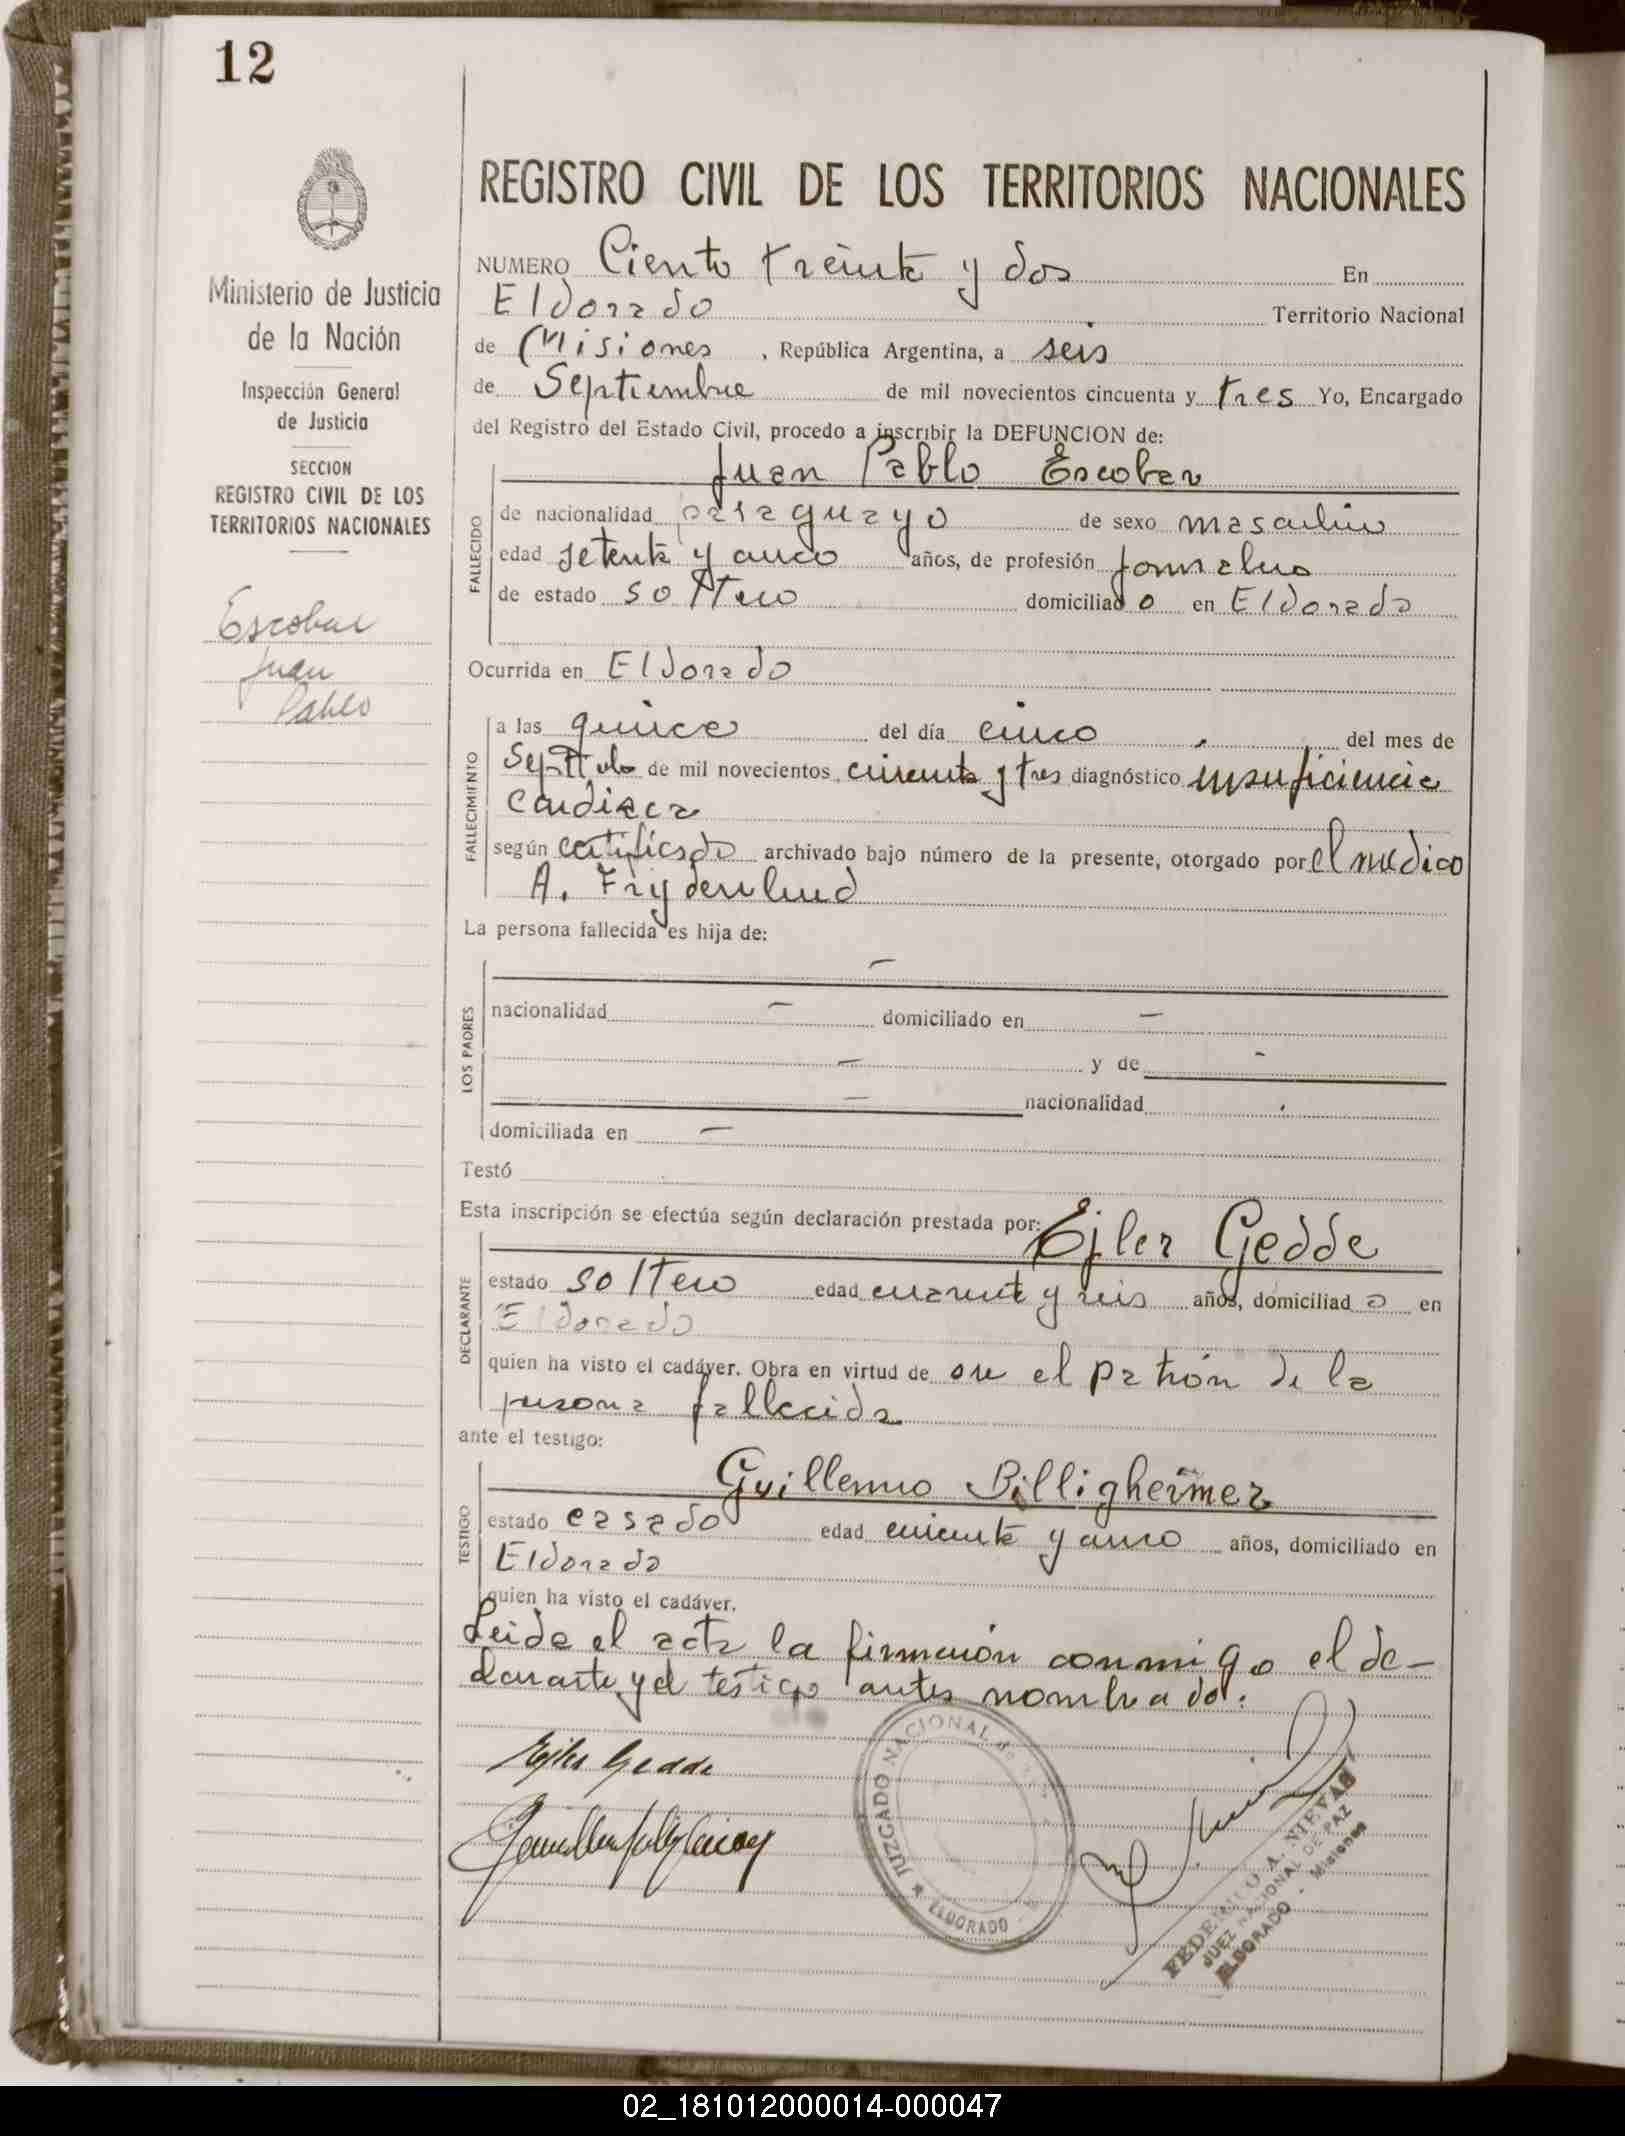 12
Ministerio de Justicia
de la Nación
Inspección General
de Justicia
SECCION
REGISTRO CIVIL DE LOS
TERRITORIOS NACIONALES
Escobar
Juan
Pablo
REGISTRO CIVIL DE LOS TERRITORIOS NACIONALES
NUMERO Ciento treinta y dos En
Eldorado Territorio Nacional
de Misiones, República Argentina, a seis
de Septiembre de mil novecientos cincuenta y tres Yo, Encargado
del Registro del Estado Civil, procedo a inscribir la DEFUNCION de:
Juan Pablo Escobar
FALLECIDO
de nacionalidad paraguayo de sexo masculino
edad setenta y cinco años, de profesión jornalero
de estado soltero domiciliado en Eldorado
Ocurrida en Eldorado
FALLECIMIENTO
a las quince del día cinco del mes de
de mil novecientos cincuenta y tres diagnóstico insuficiencia
cardiaca
según certificado archivado bajo número de la presente, otorgado por el medico
A. Frydenlund
La persona fallecida es hija de:
LOS PADRES
—
nacionalidad — domiciliado en —
— y de -
— nacionalidad
domiciliada en —
Testó
Esta inscripción se efectúa según declaración prestada por: Ejler Gedde
DECLARANTE
estado soltero edad cuarenta y seis años, domiciliado en
Eldorado
quien ha visto el cadáver. Obra en virtud de ser el patrón de la
persona fallecida
ante el testigo:
Guillermo Billigheimer
TESTIGO
estado casado edad cincuenta y cinco años, domiciliado en
Eldorado
quien ha visto el cadáver.
Leida el acta la firmarón conmigo el de-
clarante y el testigo antes nombrado.
Ejler Gedde
JUZGADO NACIONAL de
ELDORADO
FEDERICO A. NIEVAS
JUEZ NACIONAL DE PAZ
ELDORADO - Misiones
02_181012000014-000047